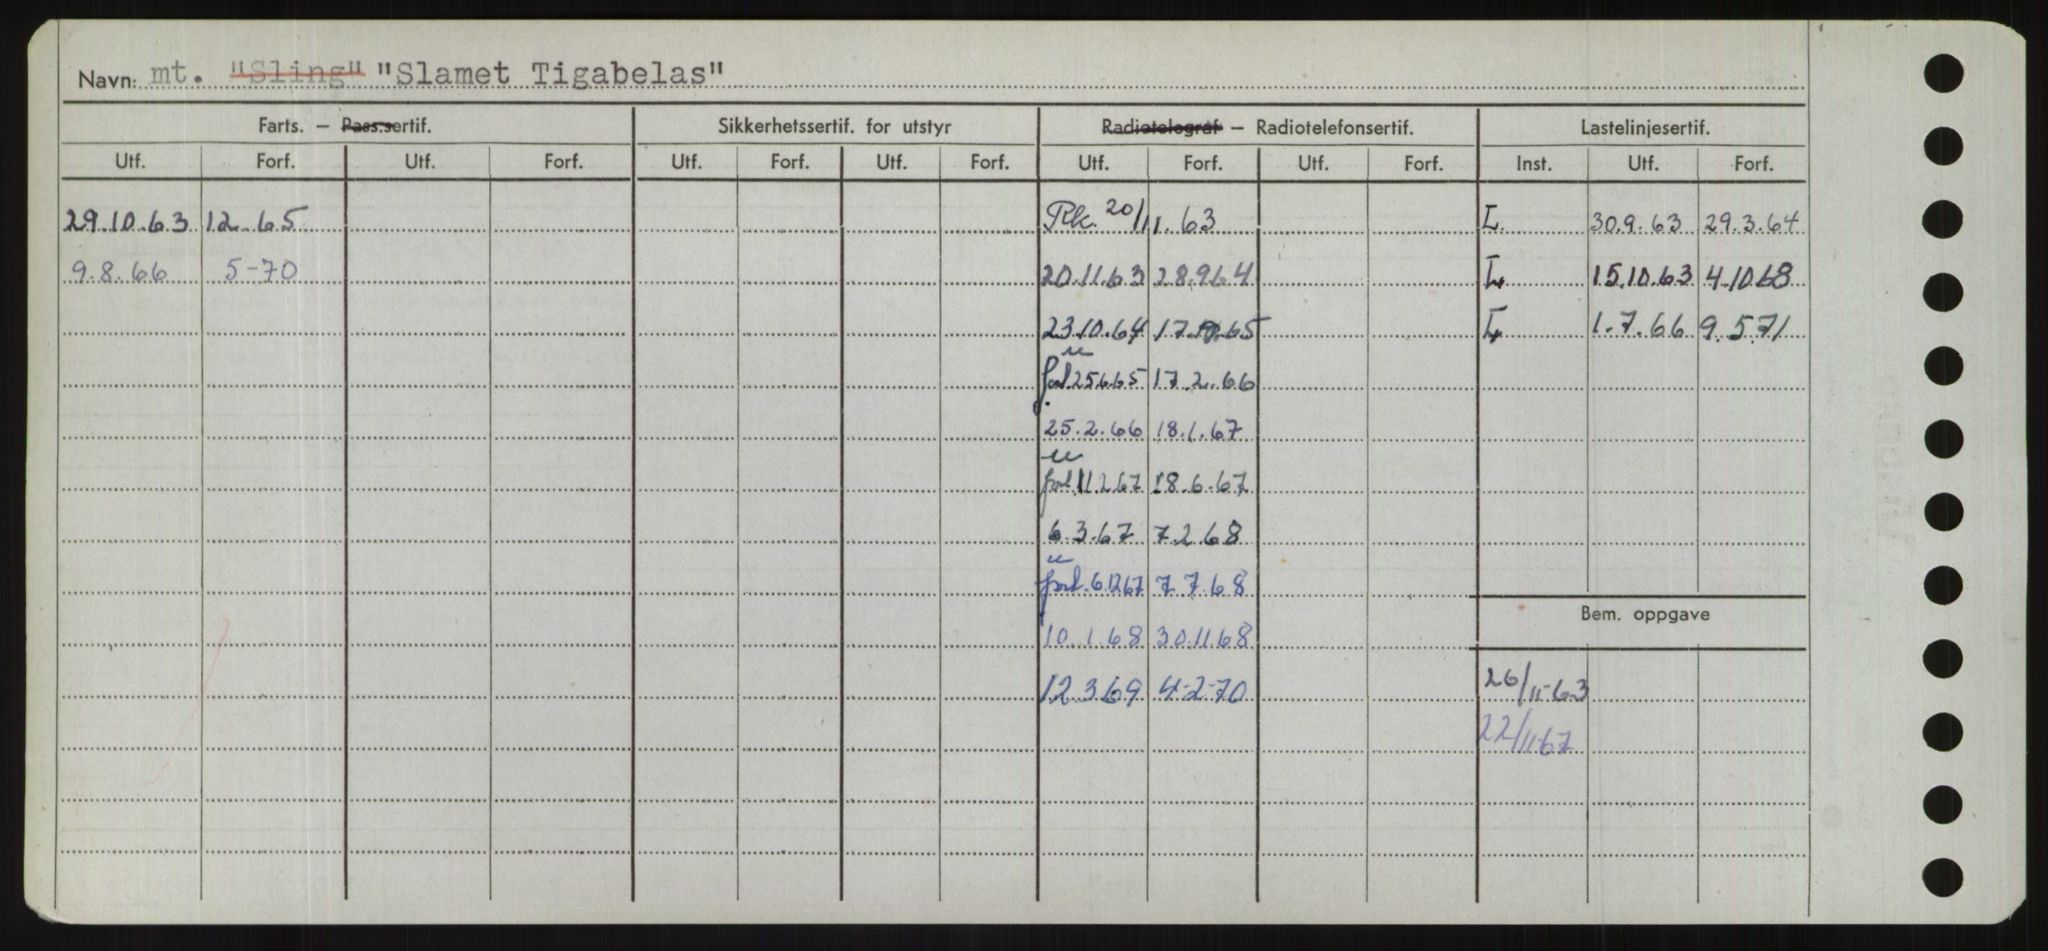 Navn: mt. "Sling" "Slamet Tigabelas"
Farts. — Pass.sertif. Sikkerhetssertif. for utstyr Radiotelegraf — Radiotelefonsertif. Lastelinjesertif.
Utf. Forf. Utf. Forf. Utf. Forf. Utf. Forf. Utf. Forf. Utf. Forf. Inst. Utf. Forf.
29.10.63 12.65 Rk. 20/11.63 L. 30.9.63 29.3.64
9.8.66 5-70 20.11.63 28.9.64 L 15.10.63 4.10.68
23.10.64 17. .65 L 1.7.66 9.5.71
forl. 25.6.65 17.2.66
25.2.66 18.1.67
forl. 11.2.67 18.6.67
6.3.67 7.2.68
forl. 6.12.67 7.7.68
Bem. oppgave
10.1.68 30.11.68
12.3.69 4-2-70 26/11-63
22/11-67